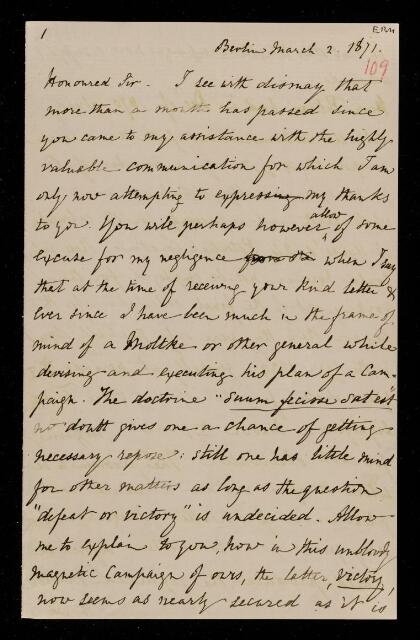 1
ERM
Berlin March 2. 1871.
109
Honoured Sir. I see with dismay that
more than a month has passed since
you came to my assistance with the highly
valuable communication for which I am
only now attempting to expressing my thanks
to you. You will perhaps however allow of some
excuse for my negligence when I say
that at the time of receiving your kind letter &
ever since I have been much in the frame of
mind of a Moltke or other general while
devising and executing his plan of a Cam-
paign. The doctrine "Suum fecisse sat est"
no doubt gives one a chance of getting
necessary repose: still one has little mind
for other matters as long as the question
"defeat or victory" is undecided. Allow
me to explain to you, how in this unbloody
magnetic Campaign of ours, the latter, victory,
now seems as nearly secured as it is